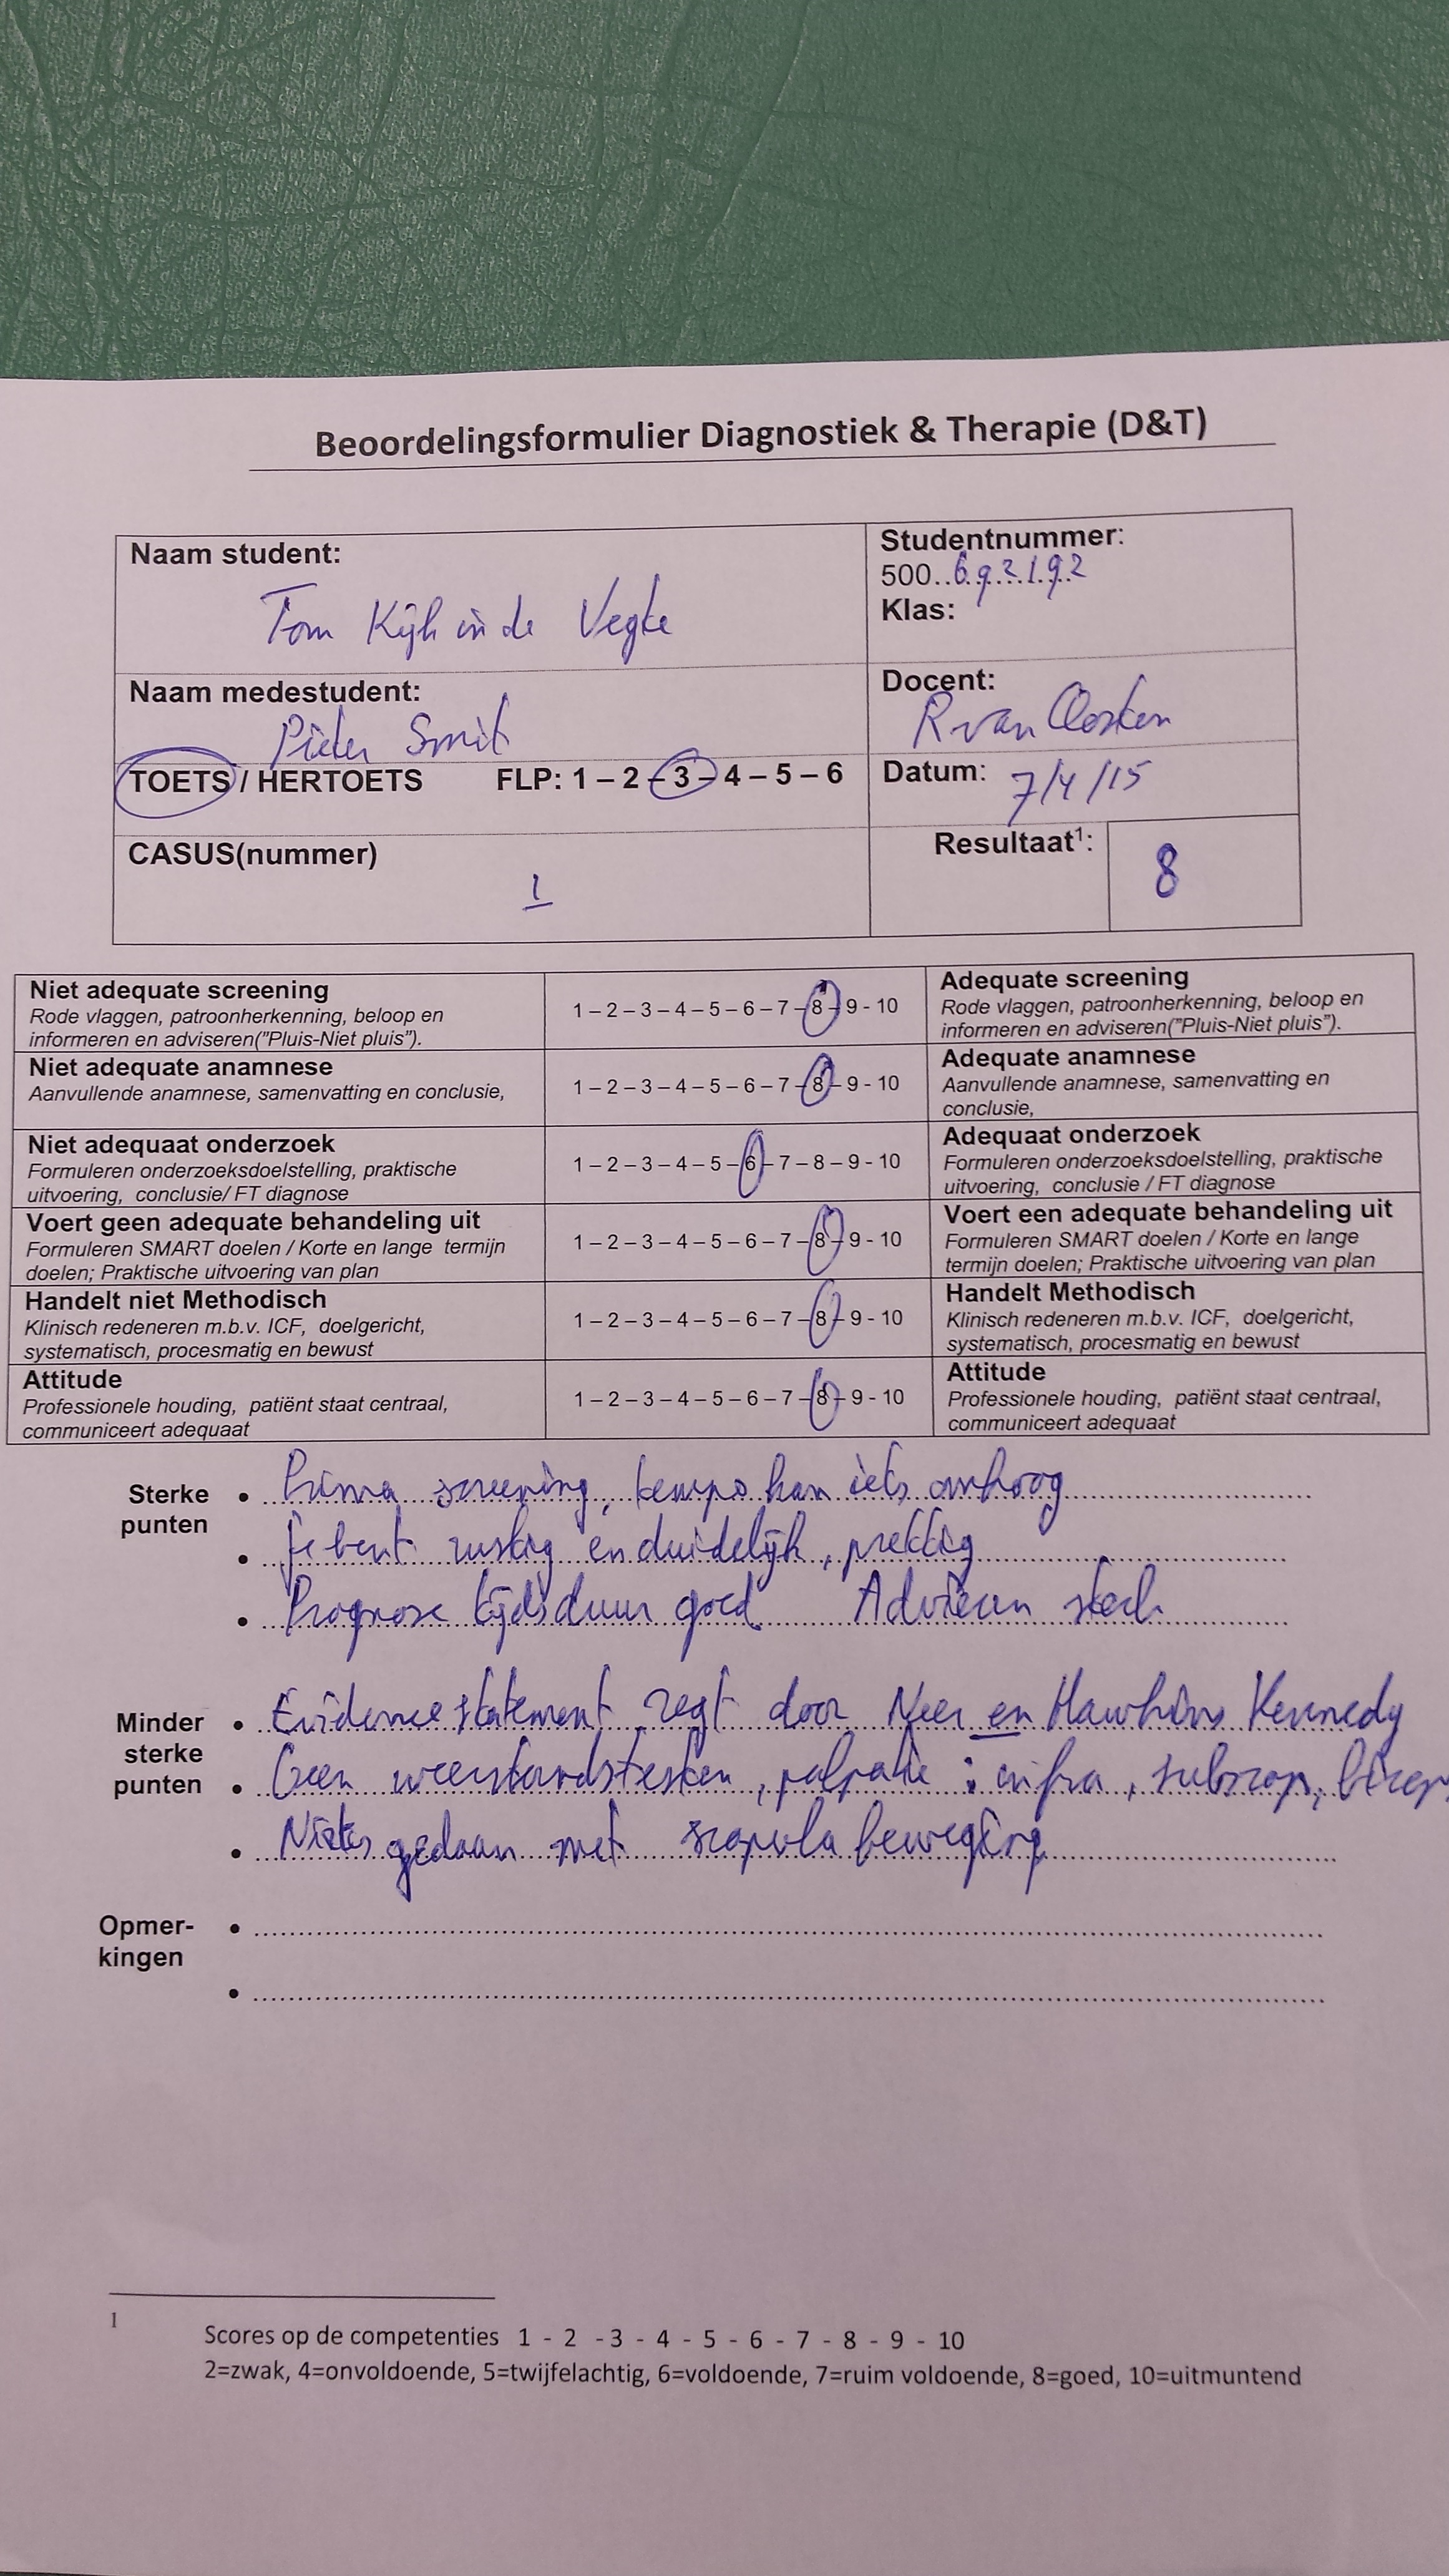 Beoordelingsformulier Diagnostiek & Therapie (D&T)
Naam student:
Tom Kijk in de Vegte
Studentnummer:
500..692192
Klas:
Naam medestudent:
Pieter Smit
Docent:
R van Oosten
TOETS / HERTOETS FLP: 1 – 2 – 3 – 4 – 5 – 6
Datum: 7/4/15
CASUS(nummer)
1
Resultaat1:
8
Niet adequate screening
Rode vlaggen, patroonherkenning, beloop en
informeren en adviseren("Pluis-Niet pluis").
1 – 2 – 3 – 4 – 5 – 6 – 7 – 8 – 9 - 10
Adequate screening
Rode vlaggen, patroonherkenning, beloop en
informeren en adviseren("Pluis-Niet pluis").
Niet adequate anamnese
Aanvullende anamnese, samenvatting en conclusie,
1 – 2 – 3 – 4 – 5 – 6 – 7 – 8 – 9 - 10
Adequate anamnese
Aanvullende anamnese, samenvatting en
conclusie,
Niet adequaat onderzoek
Formuleren onderzoeksdoelstelling, praktische
uitvoering, conclusie/ FT diagnose
1 – 2 – 3 – 4 – 5 – 6 – 7 – 8 – 9 - 10
Adequaat onderzoek
Formuleren onderzoeksdoelstelling, praktische
uitvoering, conclusie / FT diagnose
Voert geen adequate behandeling uit
Formuleren SMART doelen / Korte en lange termijn
doelen; Praktische uitvoering van plan
1 – 2 – 3 – 4 – 5 – 6 – 7 – 8 – 9 - 10
Voert een adequate behandeling uit
Formuleren SMART doelen / Korte en lange
termijn doelen; Praktische uitvoering van plan
Handelt niet Methodisch
Klinisch redeneren m.b.v. ICF, doelgericht,
systematisch, procesmatig en bewust
1 – 2 – 3 – 4 – 5 – 6 – 7 – 8 – 9 - 10
Handelt Methodisch
Klinisch redeneren m.b.v. ICF, doelgericht,
systematisch, procesmatig en bewust
Attitude
Professionele houding, patiënt staat centraal,
communiceert adequaat
1 – 2 – 3 – 4 – 5 – 6 – 7 – 8 – 9 - 10
Attitude
Professionele houding, patiënt staat centraal,
communiceert adequaat
Sterke
punten
• Prima screening, tempo kan iets omhoog
• Je bent rustig en duidelijk, prettig
• Prognose tijdsduur goed Adviezen sterk
Minder
sterke
punten
• Evidence statement zegt door Neer en Hawkins Kennedy
• Geen weerstandstesten, palpatie : infra, subscap, bicep
• Niets gedaan met scapula beweging
Opmer-
kingen
1
Scores op de competenties 1 - 2 - 3 - 4 - 5 - 6 - 7 - 8 - 9 - 10
2=zwak, 4=onvoldoende, 5=twijfelachtig, 6=voldoende, 7=ruim voldoende, 8=goed, 10=uitmuntend